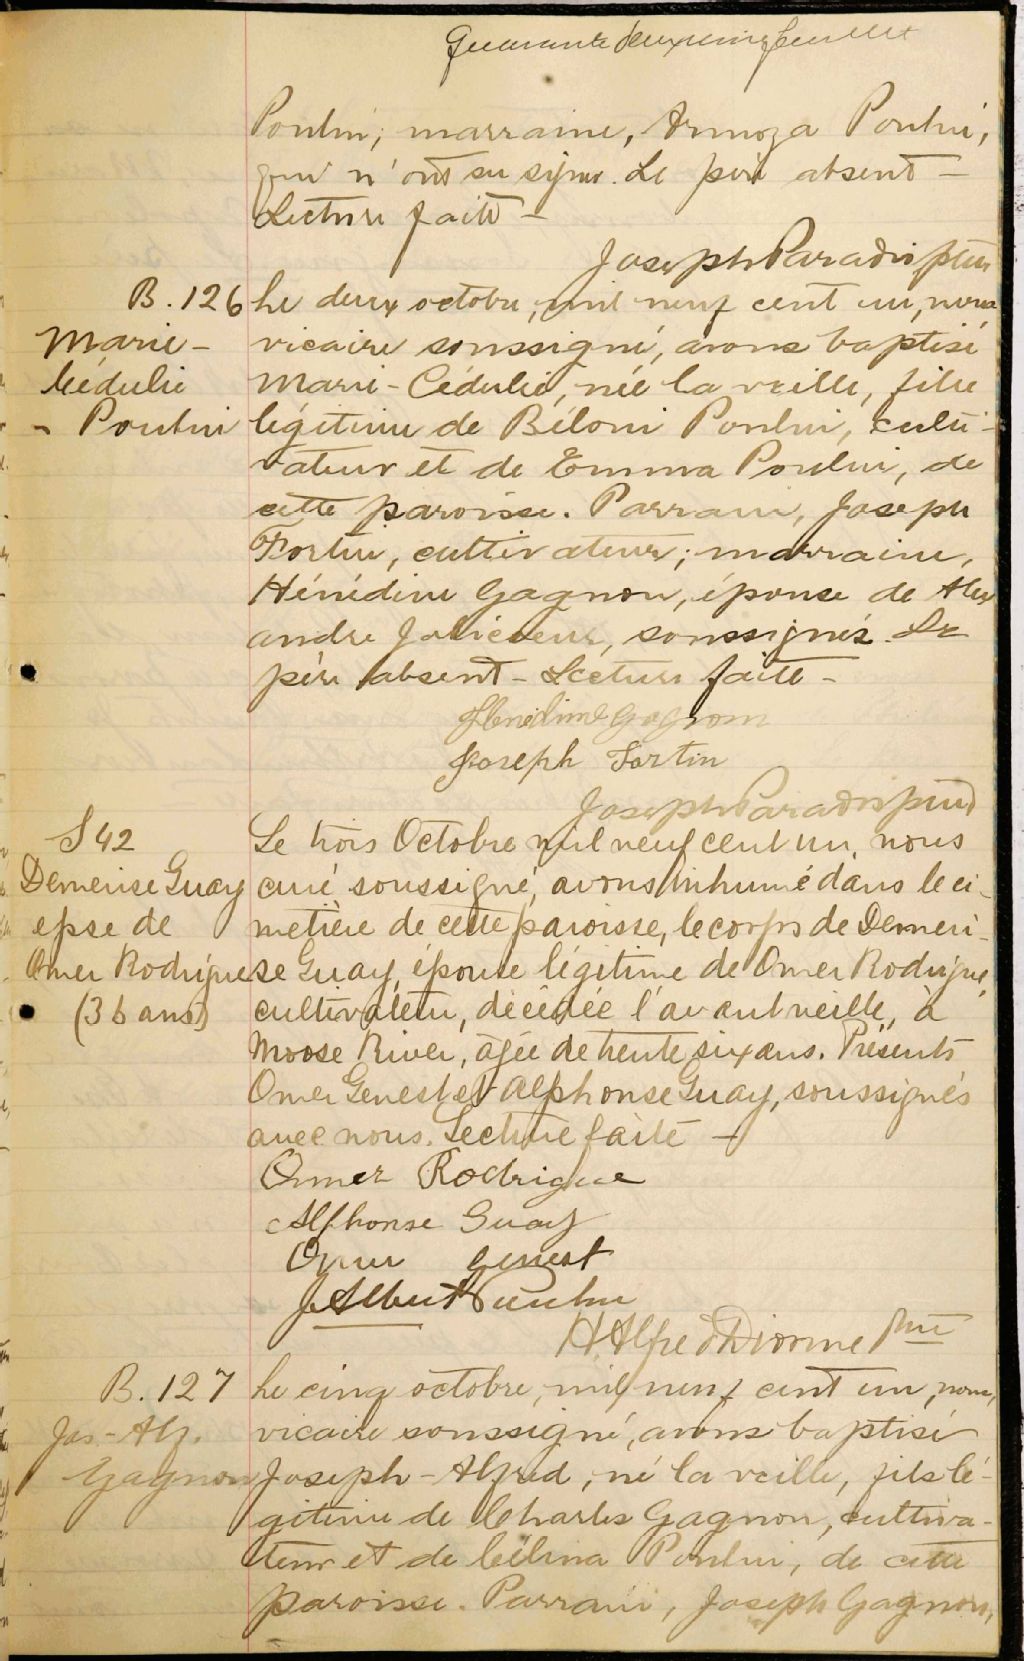 Quarante deuxième feuillet
Poulin; marraine, Armoza Poulin,
qui n'ont su signer. Le père absent -
Lecture faite -
Joseph Paradis ptre
B. 126
Marie-
Cédulie
- Poulin
Le deux octobre, mil neuf cent un, nous
vicaire soussigné, avons baptisé
Marie-Cédulie, née la veille, fille
légitime de Béloni Poulin, culti-
vateur et de Emma Poulin, de
cette paroisse. Parrain, Joseph
Fortin, cultivateur; marraine,
Hénédine Gagnon, épouse de Alex
andre Jolicoeur, soussignés. Le
père absent - Lecture faite -
Henédine Gagnon
Joseph Fortin
Joseph Paradis ptre
S 42
Demerise Guay
epse de
Omer Rodrigue
(36 ans)
Le trois Octobre mil neuf cent un, nous
curé soussigné, avons inhumé dans le ci-
metière de cette paroisse, le corps de Demeri-
se Guay, épouse légitime de Omer Rodrigue,
cultivateur, décédée l'avant veille, à
Moose River, âgée de trente six ans. Présents
Omer Genest et Alphonse Guay, soussignés
avec nous. Lecture faite -
Omer Rodrigue
Alphonse Guay
Omer Genest
J Albert Poulin
H Alfred Dionne Ptre
B. 127
Jos-Alf.
Gagnon
Le cinq octobre, mil neuf cent un, nous,
vicaire soussigné, avons baptisé
Joseph-Alfred, né la veille, fils lé-
gitime de Charles Gagnon, cultiva-
teur et de Célina Poulin, de cette
paroisse. Parrain, Joseph Gagnon,